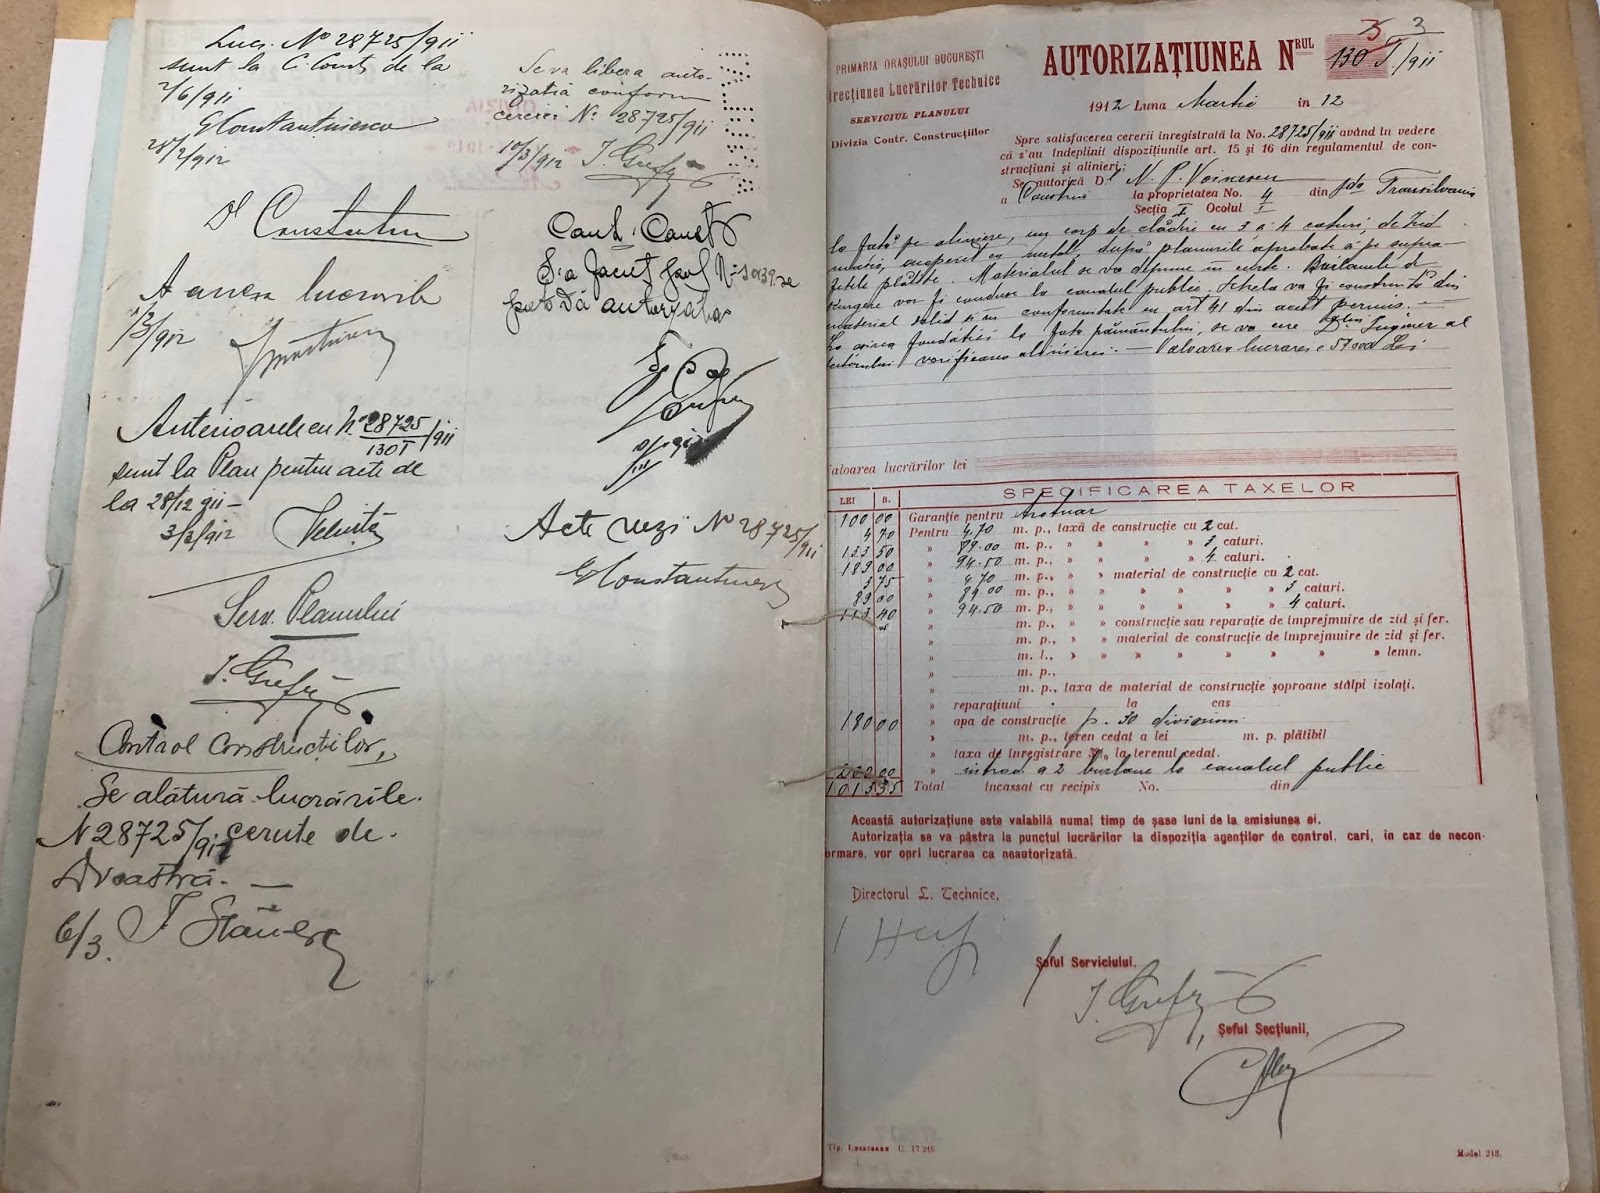 Lucr. Nº 28725/911
sunt la C. Const de la
2/6/911
GConstantinescu
28/2/912
Dl Constantin
A anexa lucrarile
1/3/912
Anterioarele cu Nº 28725/911
130 I
sunt la Plan pentru acte de
la 28/12 911 –
3/3/912
Serv. Planului
I. Grefu
Control Construcțiilor,
Se alătură lucrările
N 28725/911 cerute de
Dvoastră. —
6/3.
Se va libera auto-
rizatia conform
cererei Nº 28725/911
10/3/912
Cont. Const
S-a facut
autorizatia
Acte vezi Nº 28725/911
GConstantinescu
3
PRIMARIA ORAȘULUI BUCUREȘTI
Direcțiunea Lucrărilor Technice
SERVICIUL PLANULUI
Divizia Contr. Construcțiilor
AUTORIZAȚIUNEA NRUL 130 I/911
1912 Luna Martie in 12
Spre satisfacerea cererii înregistrată la No. 28725/911 având în vedere
că s'au îndeplinit dispozițiunile art. 15 și 16 din regulamentul de con-
strucțiuni și alinieri;
Se autoriză Dl N. P. Voinescu
a Construi la proprietatea No. 4 din Transilvania
Secția I Ocolul I
la față pe aliniere, un corp de clădire cu 3 a 4 caturi, de zid
masiv, acoperit cu metal, după planurile aprobate și pe supra-
fețele plătite. Materialul se va depune în curte. Burlanele de
scurgere vor fi conduse la canalul public. Schela va fi construită din
material solid și în conformitate cu art 41 din acest permis. —
La eșirea fundației la fața pământului, se va cere Dlui Inginer al
sectorului verificarea alinierei. — Valoarea lucrarei e 57000 Lei
Valoarea lucrărilor lei
SPECIFICAREA TAXELOR
LEI B.
100 00 Garanție pentru trotuar
4 70 Pentru 4.70 m. p., taxă de construcție cu 2 cat.
133 50 » 89.00 m. p., » » » » 3 caturi.
189 00 » 94.50 m. p., » » » » 4 caturi.
3 75 » 4.70 m. p., » » material de construcție cu 2 cat.
89 00 » 89.00 m. p., » » » » » » 3 caturi.
113 40 » 94.50 m. p., » » » » » » 4 caturi.
» m. p., » » construcție sau reparație de împrejmuire de zid și fer.
» m. p., » » material de construcție de împrejmuire de zid și fer.
» m. l., » » » » » » » » lemn.
» m. p.,
» m. p., taxa de material de construcție șoproane stâlpi izolați.
» reparațiuni la cas
180 00 » apa de construcție p. 30
» m. p., teren cedat a lei m. p. plătibil
» taxa de înregistrare % la terenul cedat.
200 00 » introd a 2 burlane la canalul public
1013 35 Total Incassat cu recipis No. din
Această autorizațiune este valabilă numai timp de șase luni de la emisiunea ei.
Autorizația se va păstra la punctul lucrărilor la dispoziția agenților de control, cari, în caz de necon-
formare, vor opri lucrarea ca neautorizată.
Directorul L. Technice,
Șeful Serviciului,
I. Grefu
Șeful Secțiunii,
C. 17246
Model 213.